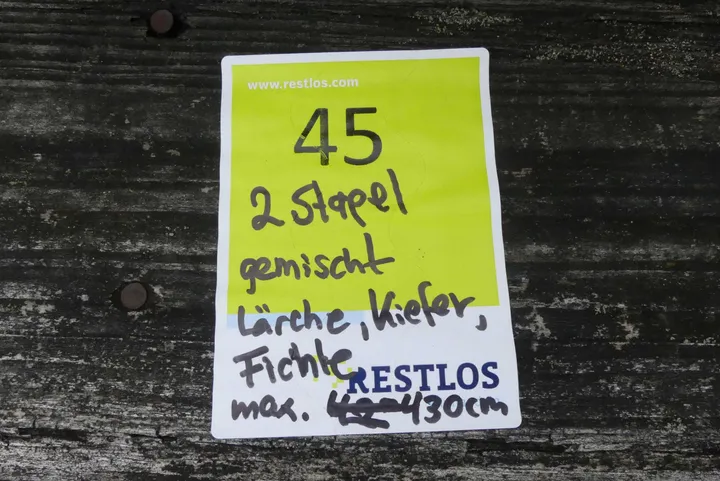 www.restlos.com
45
2 Stapel
gemischt
Lärche, Kiefer,
Fichte
RESTLOS
max. 430cm